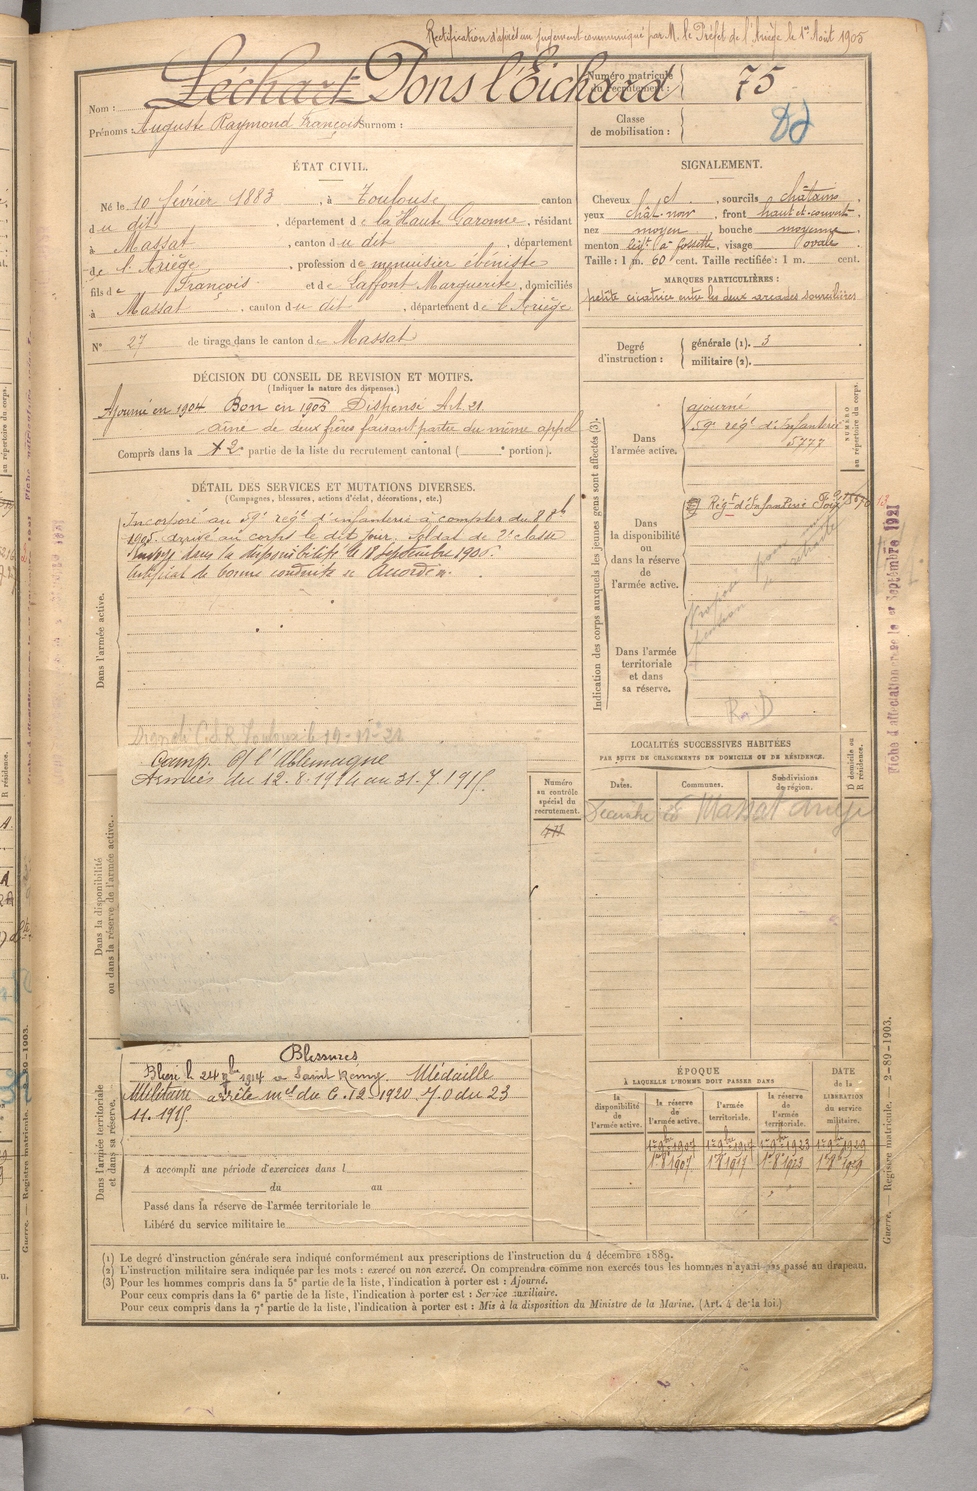 Rectification d'après un jugement communiqué par M. le Préfet de l'Ariège le 1er Août 1905
Nom : Léchart Pons l'Eichard
Prénoms : Auguste Raymond François Surnom :
Numéro matricule du recrutement : 75
Classe de mobilisation :
ÉTAT CIVIL.
Né le 10 février 1883, à Toulouse canton
du dit, département de la Haute Garonne, résidant
à Massat, canton du dit, département
de l'Ariège, profession de menuisier ébéniste
fils de François et de Laffont Marguerite, domiciliés
à Massat, canton du dit, département de l'Ariège
N° 27 de tirage dans le canton de Massat
SIGNALEMENT.
Cheveux ct, sourcils châtains,
yeux chât. , front haut et couvert,
nez moyen, bouche moyenne,
menton à fossette, visage ovale
Taille : 1 m. 60 cent. Taille rectifiée : 1 m. cent.
MARQUES PARTICULIÈRES :
petite cicatrice entre les deux arcades sourcilières
Degré d'instruction : générale (1). 3
militaire (2).
DÉCISION DU CONSEIL DE REVISION ET MOTIFS.
(Indiquer la nature des dispenses.)
Ajourné en 1904 Bon en 1905 Dispensé Art. 21
aîné de deux frères faisant partie du même appel
Compris dans la 2e partie de la liste du recrutement cantonal ( e portion).
DÉTAIL DES SERVICES ET MUTATIONS DIVERSES.
(Campagnes, blessures, actions d'éclat, décorations, etc.)
Dans l'armée active.
Incorporé au 59e régt d'infanterie à compter du 8 8bre
1905 arrivé au corps le dit jour. Soldat de 2e classe
Envoyé dans la disponibilité le 18 septembre 1906.
Certificat de bonne conduite Accordé.
C.S.R. Toulouse le
Dans la disponibilité ou dans la réserve de l'armée active.
Camp. c/ l'Allemagne
Armées du 12.8.1914 au 31.7.1915.
Numéro au contrôle spécial du recrutement.
Indication des corps auxquels les jeunes gens sont affectés (3).
NUMÉRO au répertoire du corps.
Dans l'armée active.
ajourné
59e régt d'Infanterie
5777
Dans la disponibilité ou dans la réserve de l'armée active.
Régt d'Infanterie Foix
Proposé pour pension
Dans l'armée territoriale et dans sa réserve.
R. D
Fiche d'affectation créée le 1er Septembre 1921
LOCALITÉS SUCCESSIVES HABITÉES
PAR SUITE DE CHANGEMENTS DE DOMICILE OU DE RÉSIDENCE.
Dates. Communes. Subdivisions de région. D domicile ou R résidence.
Massat Ariège
Dans l'armée territoriale et dans sa réserve.
Blessures
Blessé le 24 1914 à Saint Rémy. Médaille
Militaire arrêté mel du 6.12.1920 J.O du 23
11.1915.
A accompli une période d'exercices dans l
du au
Passé dans la réserve de l'armée territoriale le
Libéré du service militaire le
ÉPOQUE
À LAQUELLE L'HOMME DOIT PASSER DANS
DATE de la LIBÉRATION du service militaire.
la disponibilité de l'armée active. la réserve de l'armée active. l'armée territoriale. la réserve de l'armée territoriale.
1er 9bre 1907 1er 9bre 1917 1er 9bre 1923 1er 9bre 1929
1er 8bre 1907 1er 8bre 1917 1er 8bre 1923 1er 8bre 1929
(1) Le degré d'instruction générale sera indiqué conformément aux prescriptions de l'instruction du 4 décembre 1889.
(2) L'instruction militaire sera indiquée par les mots : exercé ou non exercé. On comprendra comme non exercés tous les hommes n'ayant pas passé au drapeau.
(3) Pour les hommes compris dans la 5e partie de la liste, l'indication à porter est : Ajourné.
Pour ceux compris dans la 6e partie de la liste, l'indication à porter est : Service auxiliaire.
Pour ceux compris dans la 7e partie de la liste, l'indication à porter est : Mis à la disposition du Ministre de la Marine. (Art. 4 de la loi.)
Guerre. — Registre matricule. — 2-89-1903.